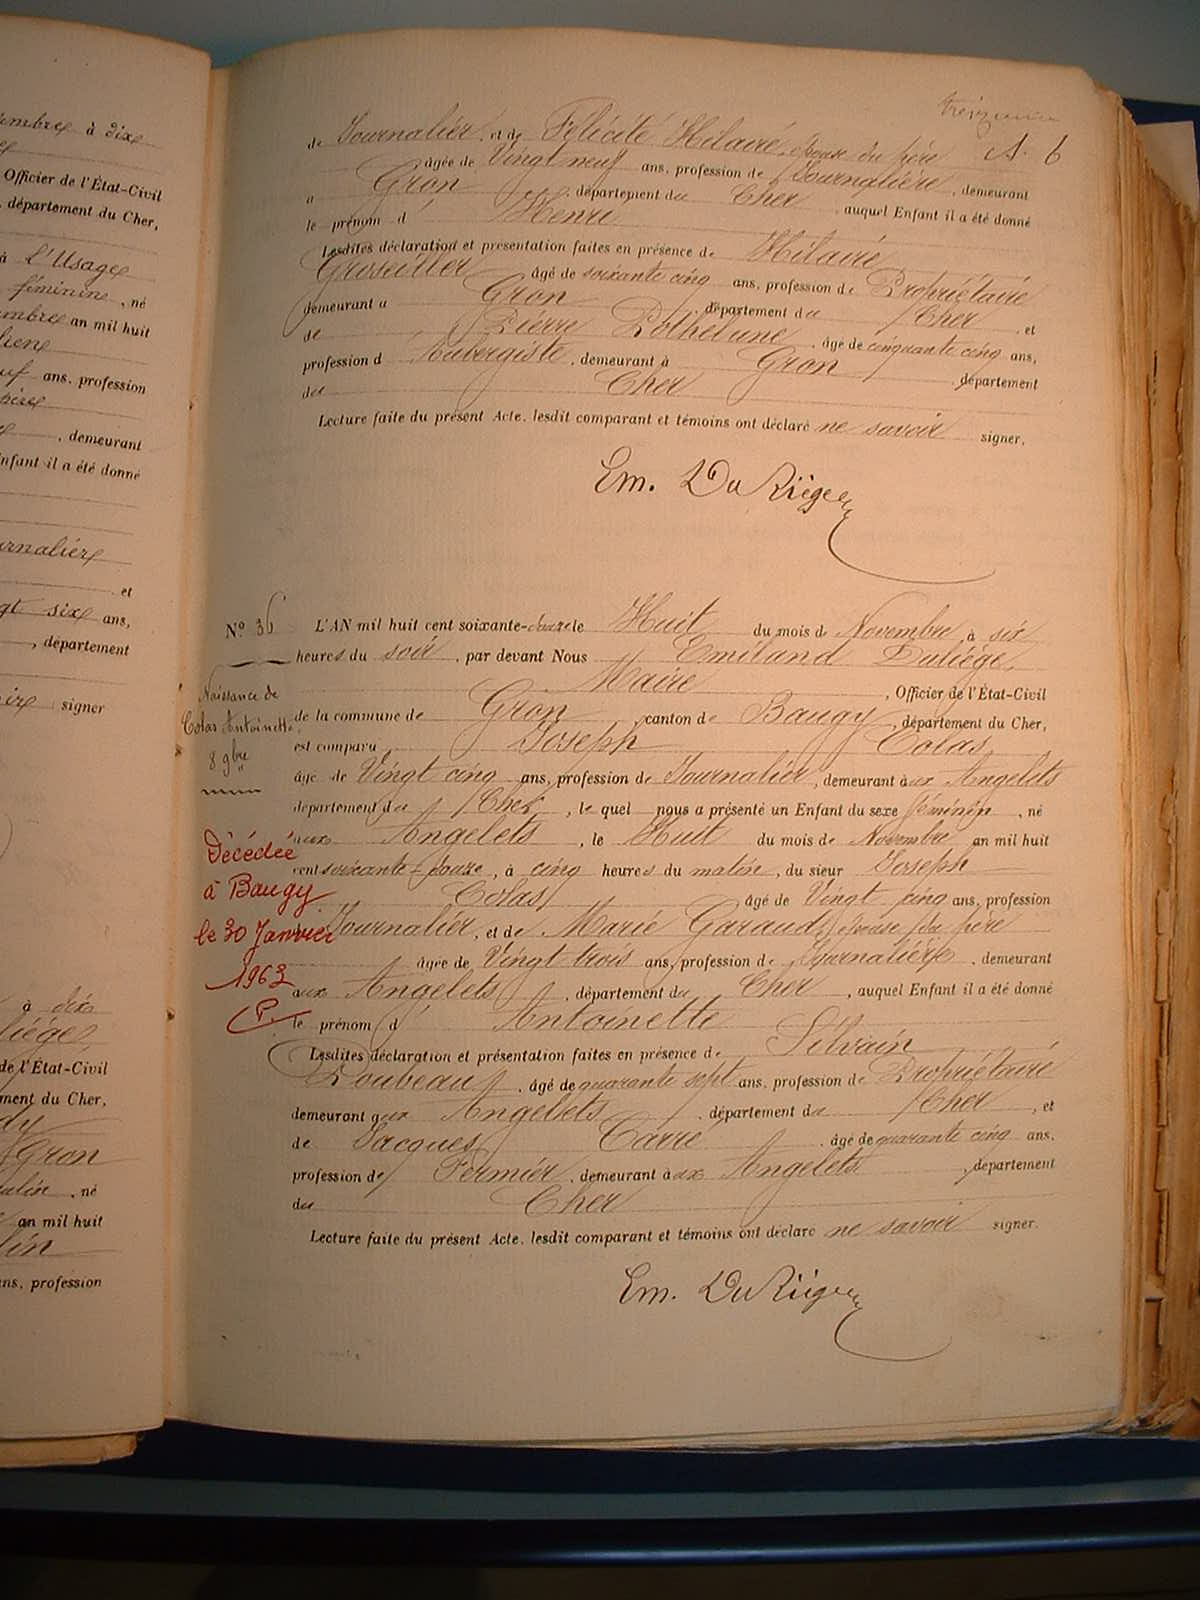 embre à dix
Officier de l'État-Civil
, département du Cher,
à l'Usage
féminine, né
embre an mil huit
uf ans, profession
père
, demeurant
nfant il a été donné
urnalier
et
gt six ans,
, département
ir signer
à dix
iège,
de l'État-Civil
ment du Cher,
dy
Gron
atin, né
an mil huit
lin
ans, profession
treizieme
A. 6
de Journalier, et de Félicité Hilaire, épouse du père
âgée de Vingt neuf ans, profession de Journalière, demeurant
a Gron, département du Cher auquel Enfant il a été donné
le prénom d' Henri
Lesdites déclaration et présentation faites en présence de Hilaire
Groseiller âgé de soixante cinq ans, profession de Propriétaire
demeurant a Gron, département du Cher et
de Pierre Pothelune, âgé de cinquante cinq ans,
profession d' Aubergiste, demeurant à Gron, département
du Cher
Lecture faite du présent Acte, lesdit comparant et témoins ont déclaré ne savoir signer.
Em. Duliège
N° 36 L'AN mil huit cent soixante-douze le Huit du mois de Novembre, à six
heures du soir, par devant Nous Emiland Duliège,
Maire, Officier de l'État-Civil
Naissance de
Colas Antoinette
8 9bre
de la commune de Gron canton de Baugy, département du Cher,
est comparu Joseph Colas
âgé de Vingt cinq ans, profession de Journalier, demeurant aux Angelets
département du Cher, lequel nous a présenté un Enfant du sexe féminin, né
aux Angelets, le Huit du mois de Novembre an mil huit
cent soixante-douze, à cinq heures du matin, du sieur Joseph
Colas âgé de Vingt cinq ans, profession
Journalier, et de Marie Garaud, épouse du père
âgée de Vingt trois ans, profession de Journalière, demeurant
aux Angelets, département du Cher, auquel Enfant il a été donné
le prénom d' Antoinette
Décédée
à Baugy
le 30 Janvier
1963
Lesdites déclaration et présentation faites en présence de Silvain
Loubeau, âgé de quarante sept ans, profession de Propriétaire
demeurant aux Angelets, département du Cher, et
de Jacques Carré, âgé de quarante cinq ans,
profession de Fermier, demeurant à aux Angelets, département
du Cher
Lecture faite du présent Acte, lesdit comparant et témoins ont déclaré ne savoir signer.
Em. Duliège